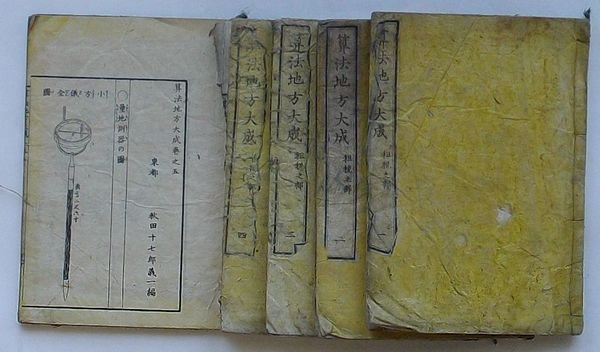 算法地方大成巻之五
東都 秋田十七郎義一編
○量地測器の圖
小方儀全圖
算法地方大成
四
算法地方大成
租税之部
三
算法地方大成
租税之部
二
算法地方大成
租税之部
一